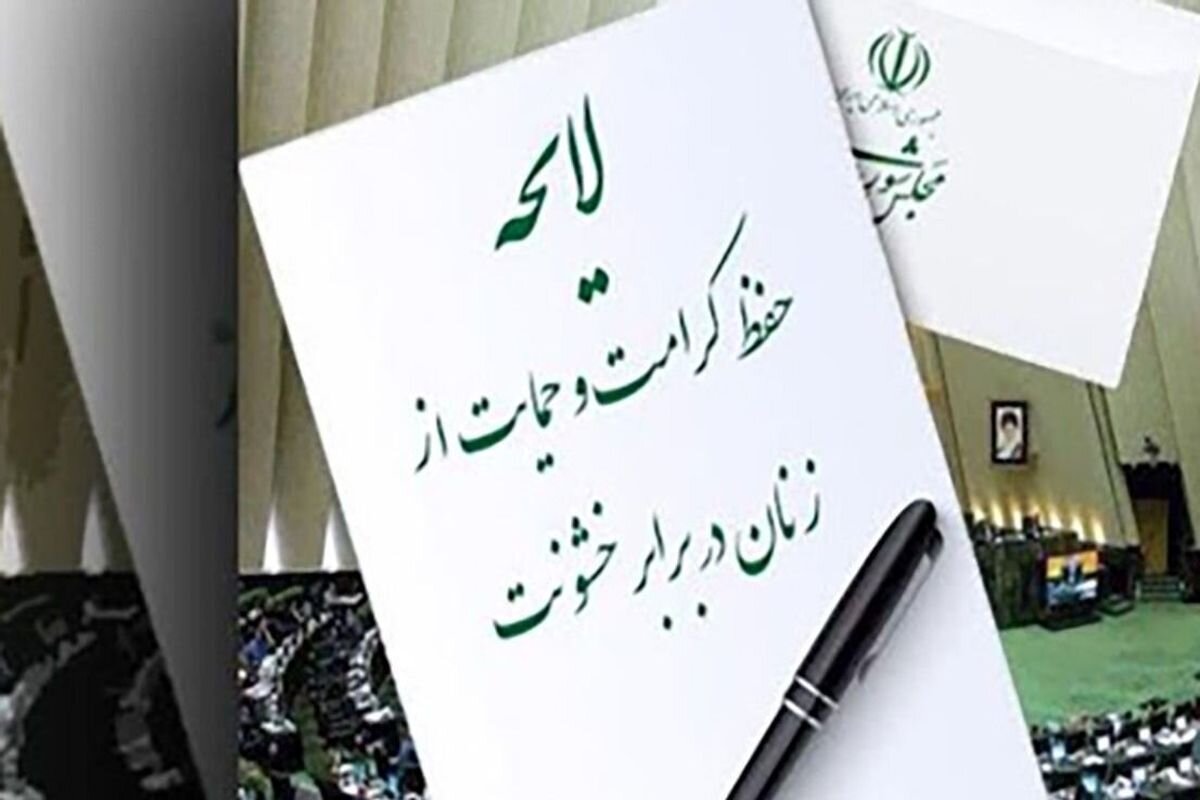 لایحه
حفظ کرامت و حمایت از
زنان در برابر خشونت
جمهوری اسلامی
مجلس